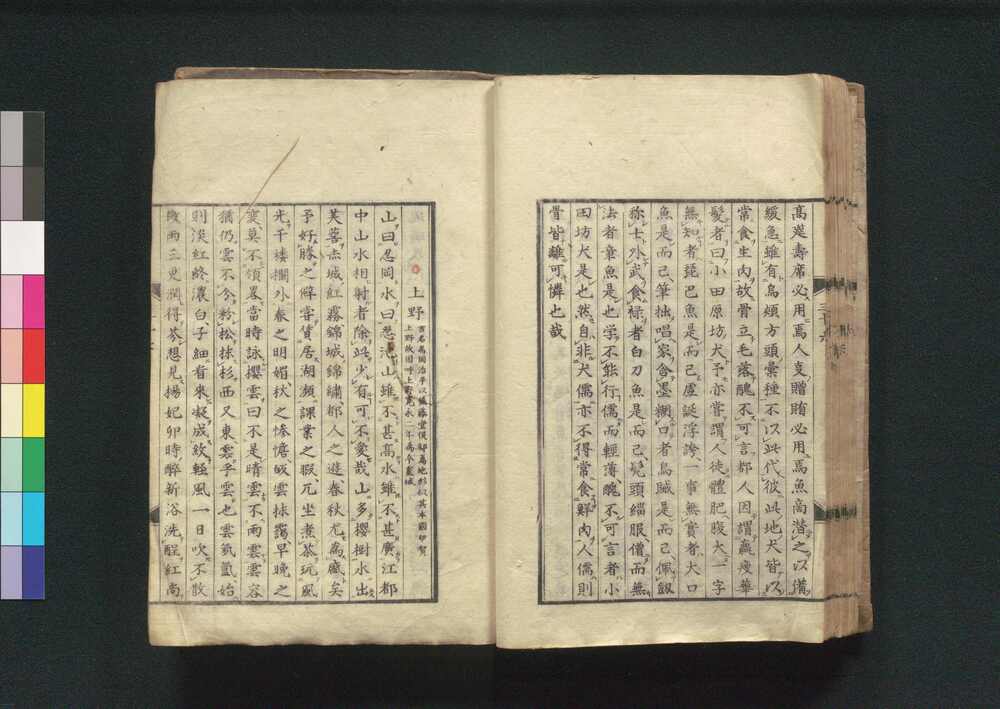 高筵壽席必用焉人支贈賄必用焉魚商潜之以備
緩急雖有烏頬方頭彙種不以此代彼此地犬皆以
常食生肉故骨立毛落醜不可言都人因謂羸瘦華
髮者曰小田原坊犬予亦嘗謂人徒體肥腹大一字
無知者莵已魚是而已虛誕浮誇一事無實者大口
魚是而已筆拙唱家含墨糊口者烏賊是而已佩劔
称士外武食禄者白刀魚是而已髡頭緇服僧而無
法者章魚是也学不能行儒而輕薄醜不可言者小
田坊犬是也然自非犬儒亦不得常食鮮肉人儒則
骨皆離可憐也哉
上野
山曰忍岡水曰忍池山雖不甚高水雖不甚廣江都
中山水相射者除此少有可不愛哉山多櫻樹水出
芙蓉赤城紅霧錦城錦繡都人之遊春秋尤為盛矣
予好勝之癖嘗賃居湖瀕課業之暇兀坐煮茶玩風
光千楼欄外春之明媚秋之惨憺皎雲抹靄早晩之
変莫不領畧當時詠櫻雲曰不是晴雲不雨雲雲容
猶仍雲不分粉松抹杉西又東雲乎雲也雲氤氳始
則淡紅終濃白子細看來凝成紋軽風一日吹不散
微雨三更潤得芬想見楊妃卯時酔新浴洗醒紅尚